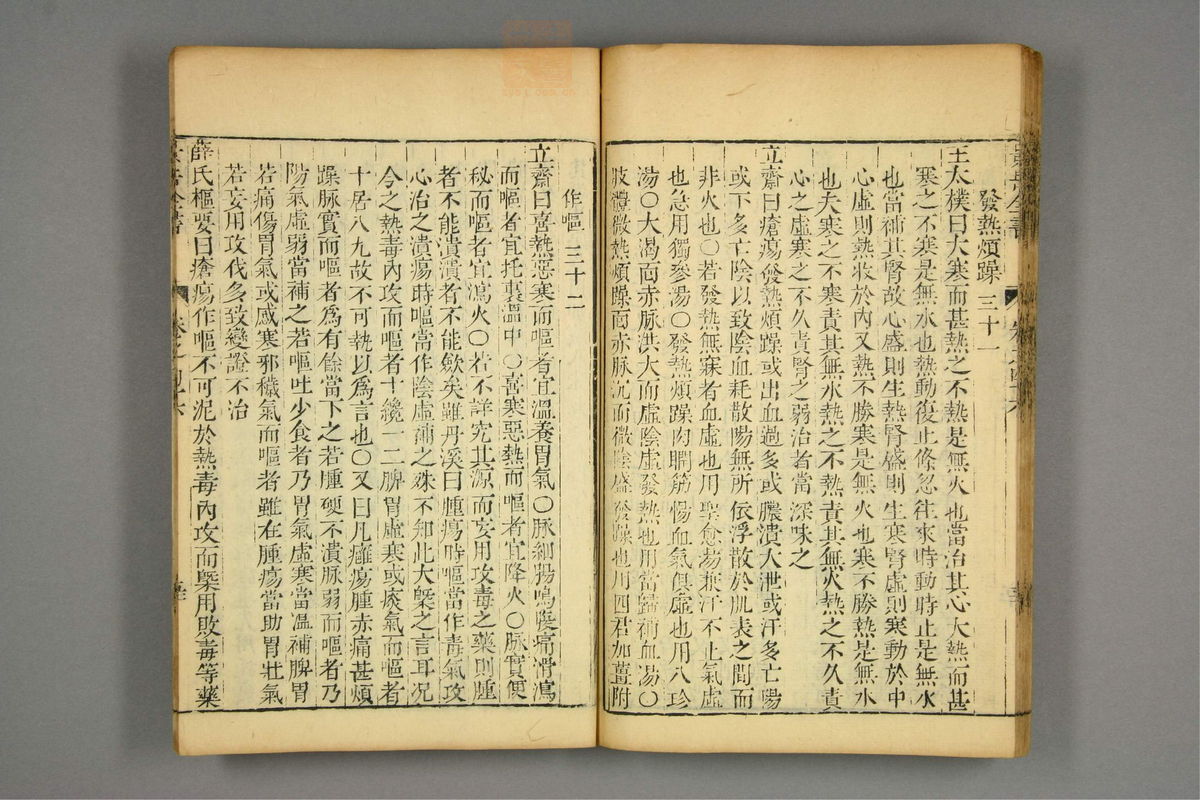 發熱煩躁 三十一
王太樸曰大寒而甚熱之不熱是無火也當治其心大熱而甚
寒之不寒是無水也熱動復止倐忽往來時動時止是無水
也當補其腎故心盛則生熱腎盛則生寒腎虛則寒動於中
心虛則熱收於內又熱不勝寒是無火也寒不勝熱是無水
也夫寒之不寒責其無水熱之不熱責其無火熱之不久責
心之虛寒之不久責腎之弱治者當深味之
立齋曰瘡瘍發熱煩躁或出血過多或膿潰大泄或汗多亡陽
或下多亡陰以致陰血耗散陽無所依浮散於肌表之間而
非火也〇若發熱無寐者血虛也用聖愈湯兼汗不止氣虛
也急用獨參湯〇發熱煩躁肉瞤筋惕血氣俱虛也用八珍
湯〇大渴面赤脉洪大而虛陰虛發熱也用當歸補血湯〇
肢體微熱煩躁面赤脉沉而微陰盛發躁也用四君加薑附
作嘔 三十二
立齋曰喜熱惡寒而嘔者宜溫養胃氣〇脉細腸鳴腹痛滑瀉
而嘔者宜托裏溫中〇喜寒惡熱而嘔者宜降火〇脉實便
秘而嘔者宜瀉火〇若不詳究其源而妄用攻毒之藥則腫
者不能潰潰者不能歛矣雖丹溪曰腫瘍時嘔當作毒氣攻
心治之潰瘍時嘔當作陰虛補之殊不知此大槩之言耳况
今之熱毒內攻而嘔者十纔一二脾胃虛寒或痰氣而嘔者
十居八九故不可執以爲言也〇又曰凡癰瘍腫赤痛甚煩
躁脉實而嘔者爲有餘當下之若腫硬不潰脉弱而嘔者乃
陽氣虛弱當補之若嘔吐少食者乃胃氣虛寒當溫補脾胃
若痛傷胃氣或感寒邪穢氣而嘔者雖在腫瘍當助胃壯氣
若妄用攻伐多致變證不治
薛氏樞要曰瘡瘍作嘔不可泥於熱毒內攻而槩用敗毒等藥